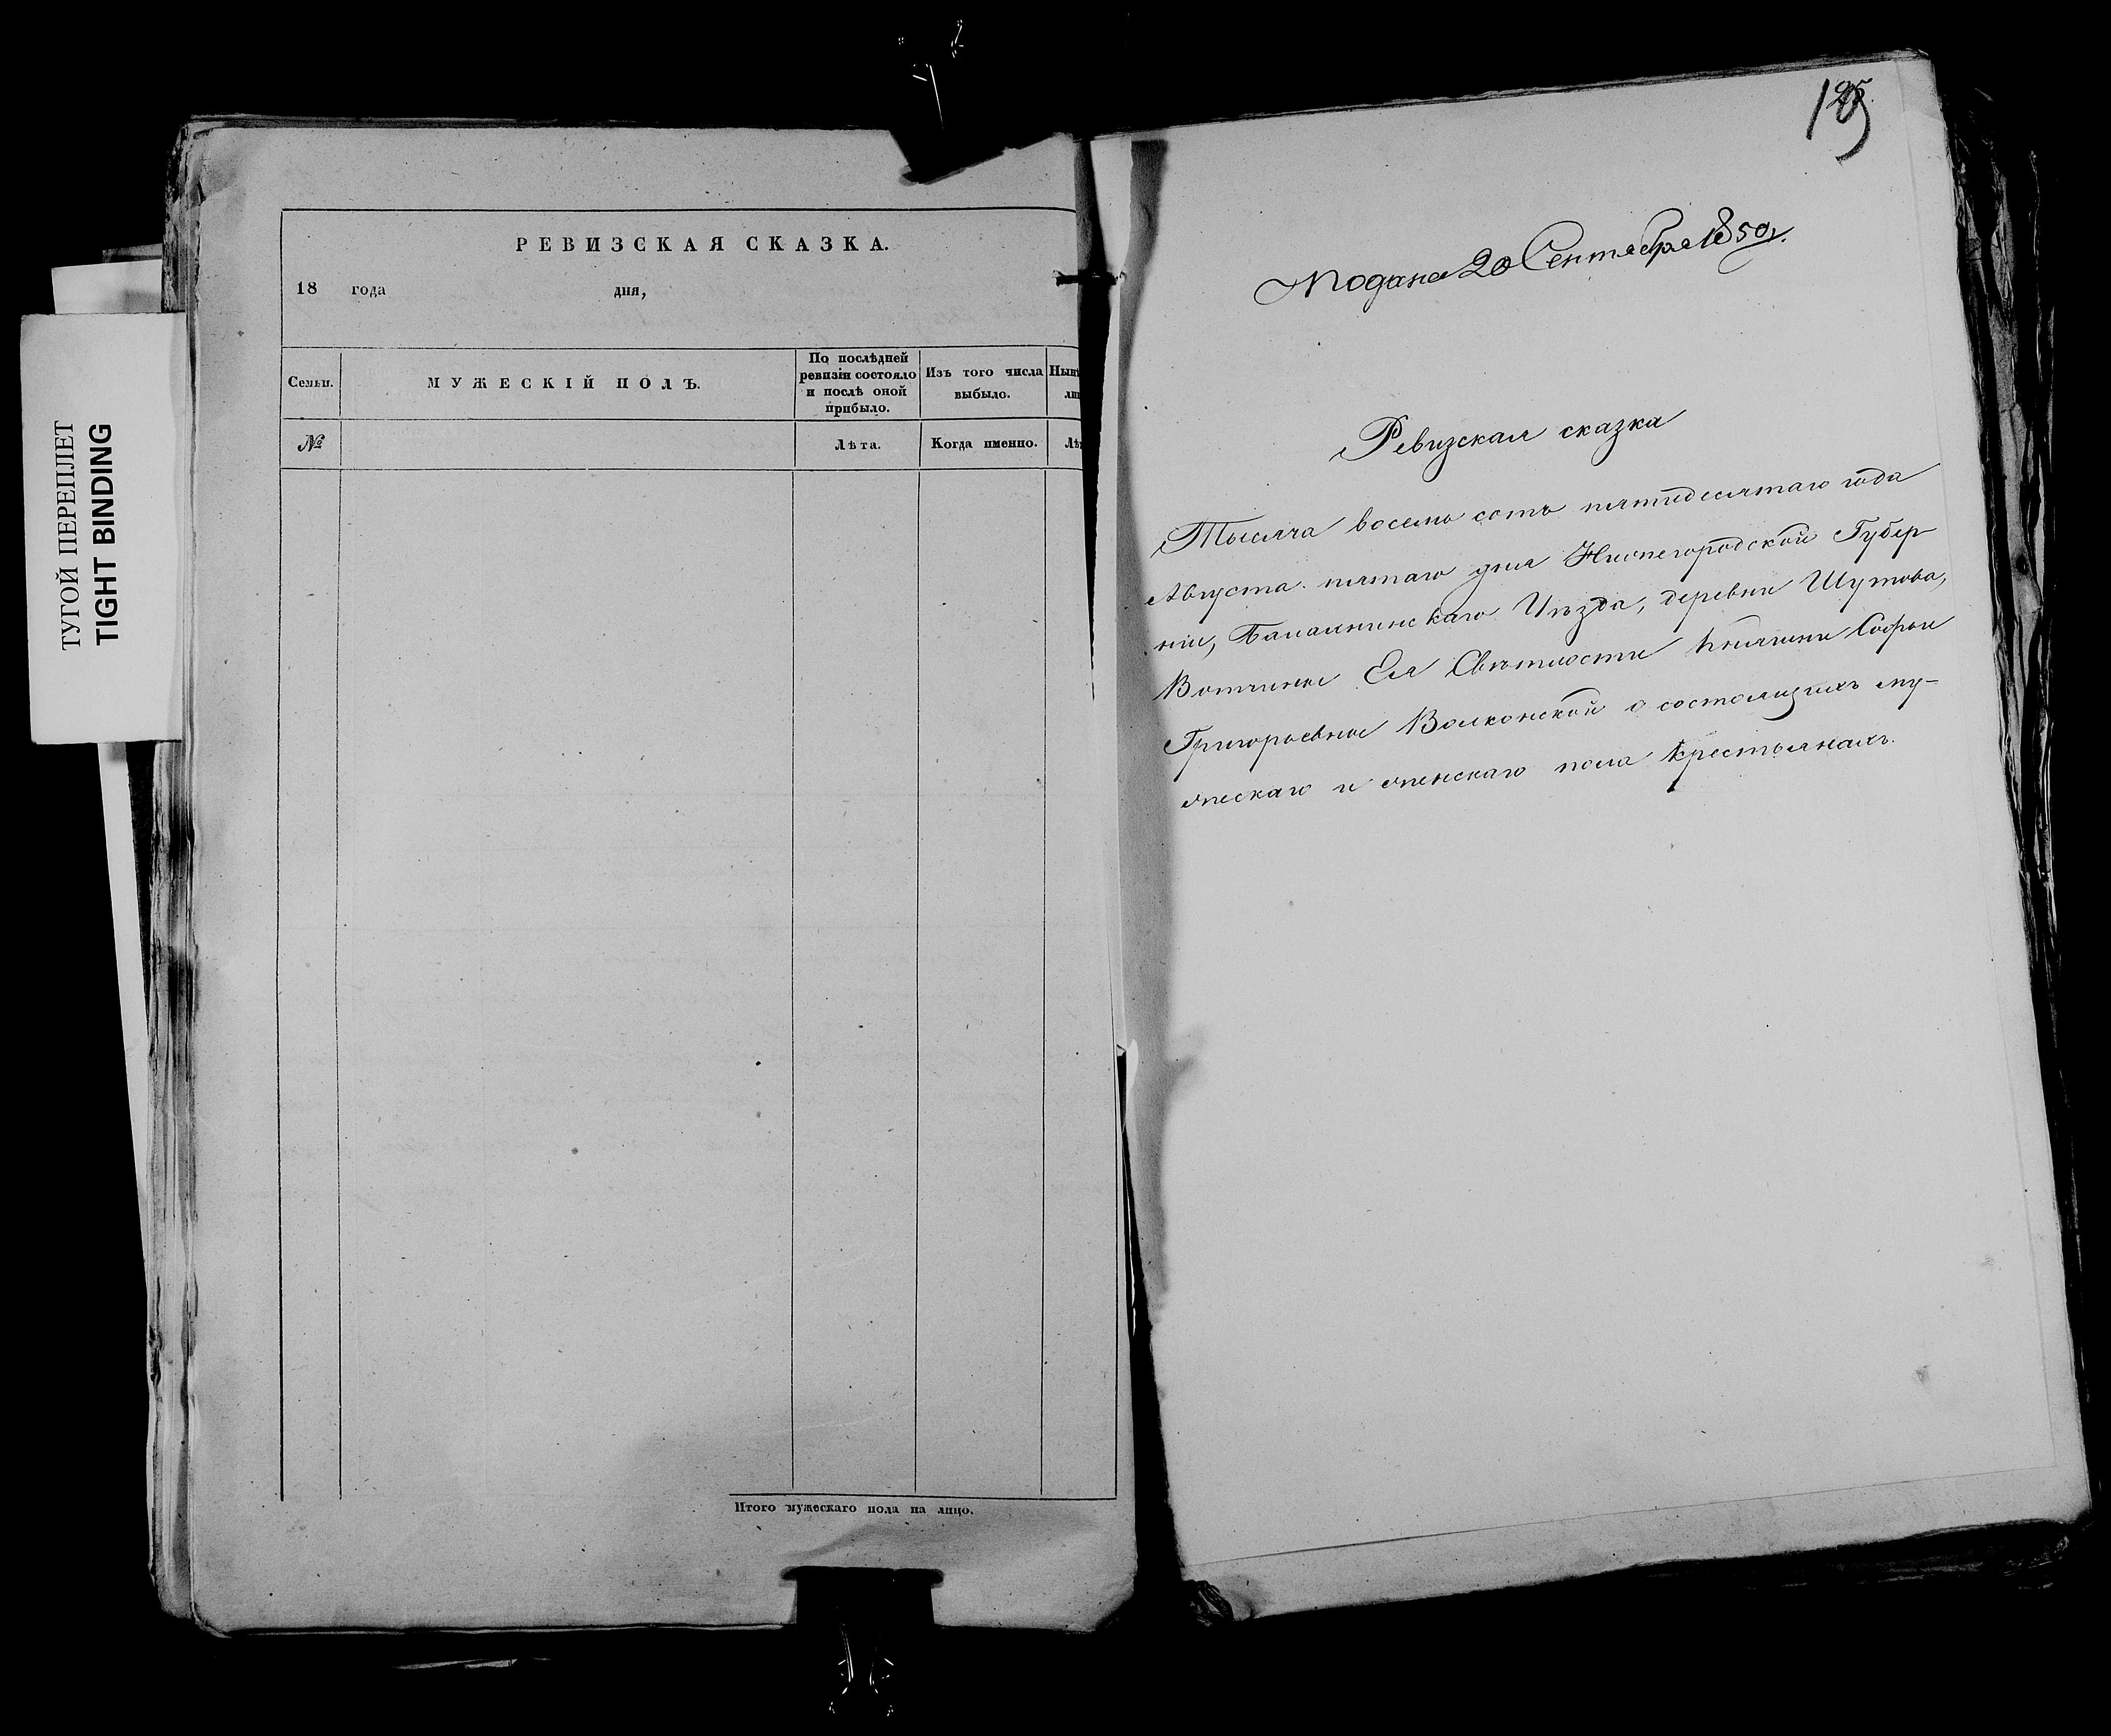 ТУГОЙ ПЕРЕПЛЕТ
TIGHT BINDING
РЕВИЗСКАЯ СКАЗКА.
18 года дня,
Семьи.
МУЖЕСКІЙ ПОЛЪ.
По послѣдней
ревизіи состояло
и послѣ оной
прибыло.
Изъ того числа
выбыло.
№
Лѣта.
Когда именно.
Итого мужескаго пола на лицо.
Подана 20 Сентября 1850 г.
Ревизская сказка
Тысяча восемь сотъ пятидесятаго года
Августа пятаго дня Нижегородской Губер
ніи, Балахнинскаго Уѣзда, деревни Шутова,
Вотчины Ея Свѣтлости Княгини Софьи
Григорьевны Волконской о состоящихъ му-
жескаго и женскаго пола крестьянахъ.